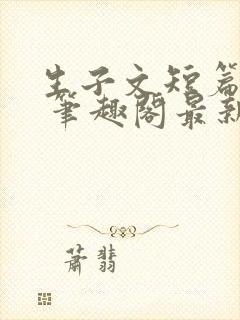 生子文短篇
笔趣阁最新
萧翡